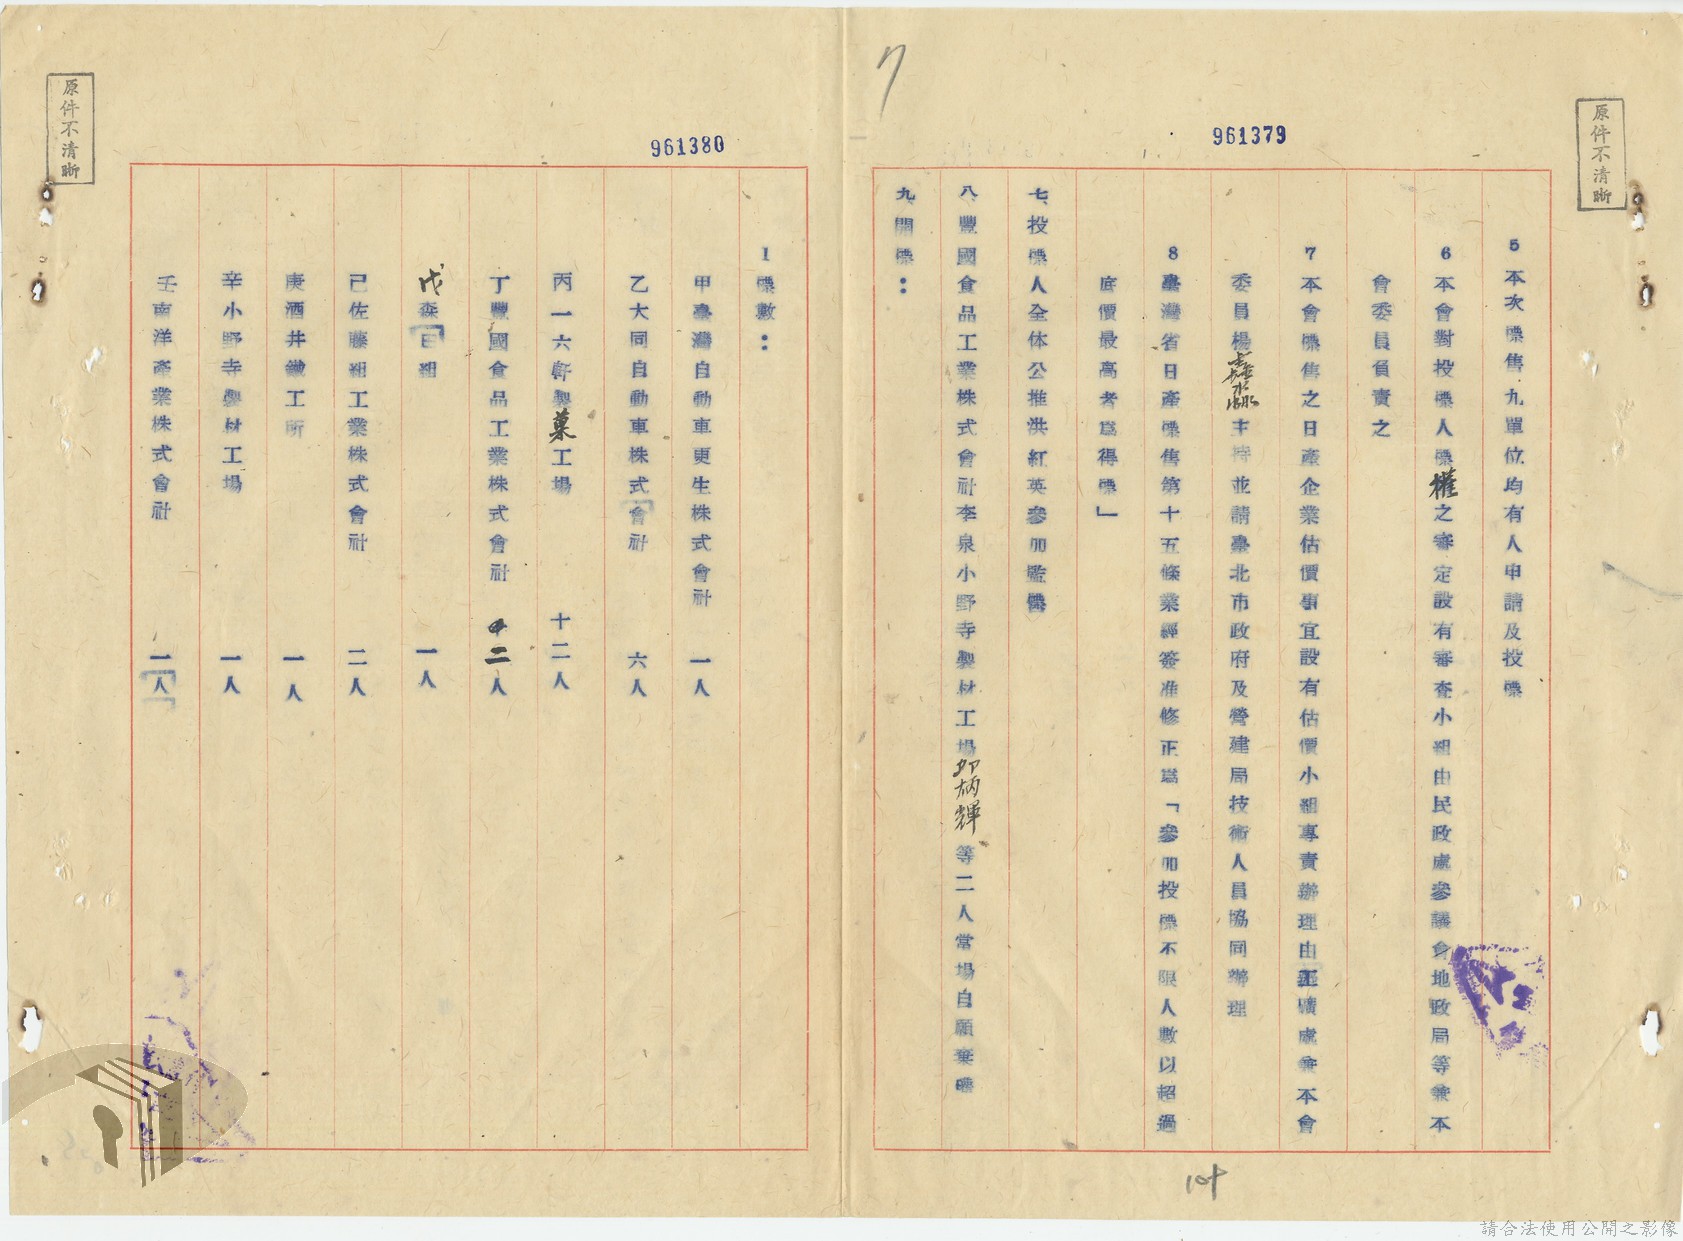 原件不清晰
961379
5本次標售九單位均有人申請及投標
6本會對投標人標權之審定設有審查小組由民政處參議會地政局等兼本
會委員負責之
7本會標售之日產企業估價事宜設有估價小組專責辦理由工礦處兼本會
委員楊 主持並請臺北市政府及營建局技術人員協同辦理
8臺灣省日產標售第十五條業經簽准修正為「參加投標不限人數以超過
底價最高者為得標」
七、投標人全体公推洪紅英參加監標
八、豐國食品工業株式會社李泉小野寺製材工場 炳輝等二人當場自願棄標
九、開標：
104
原件不清晰
961380
1標數：
甲臺灣自動車更生株式會社 一人
乙大同自動車株式會社 六人
丙一六軒製菓工場 十二人
丁豐國食品工業株式會社 二人
戊森田組 一人
己佐藤組工業株式會社 二人
庚酒井鐵工所 一人
辛小野寺製材工場 一人
壬南洋產業株式會社 一人
請合法使用公開之影像